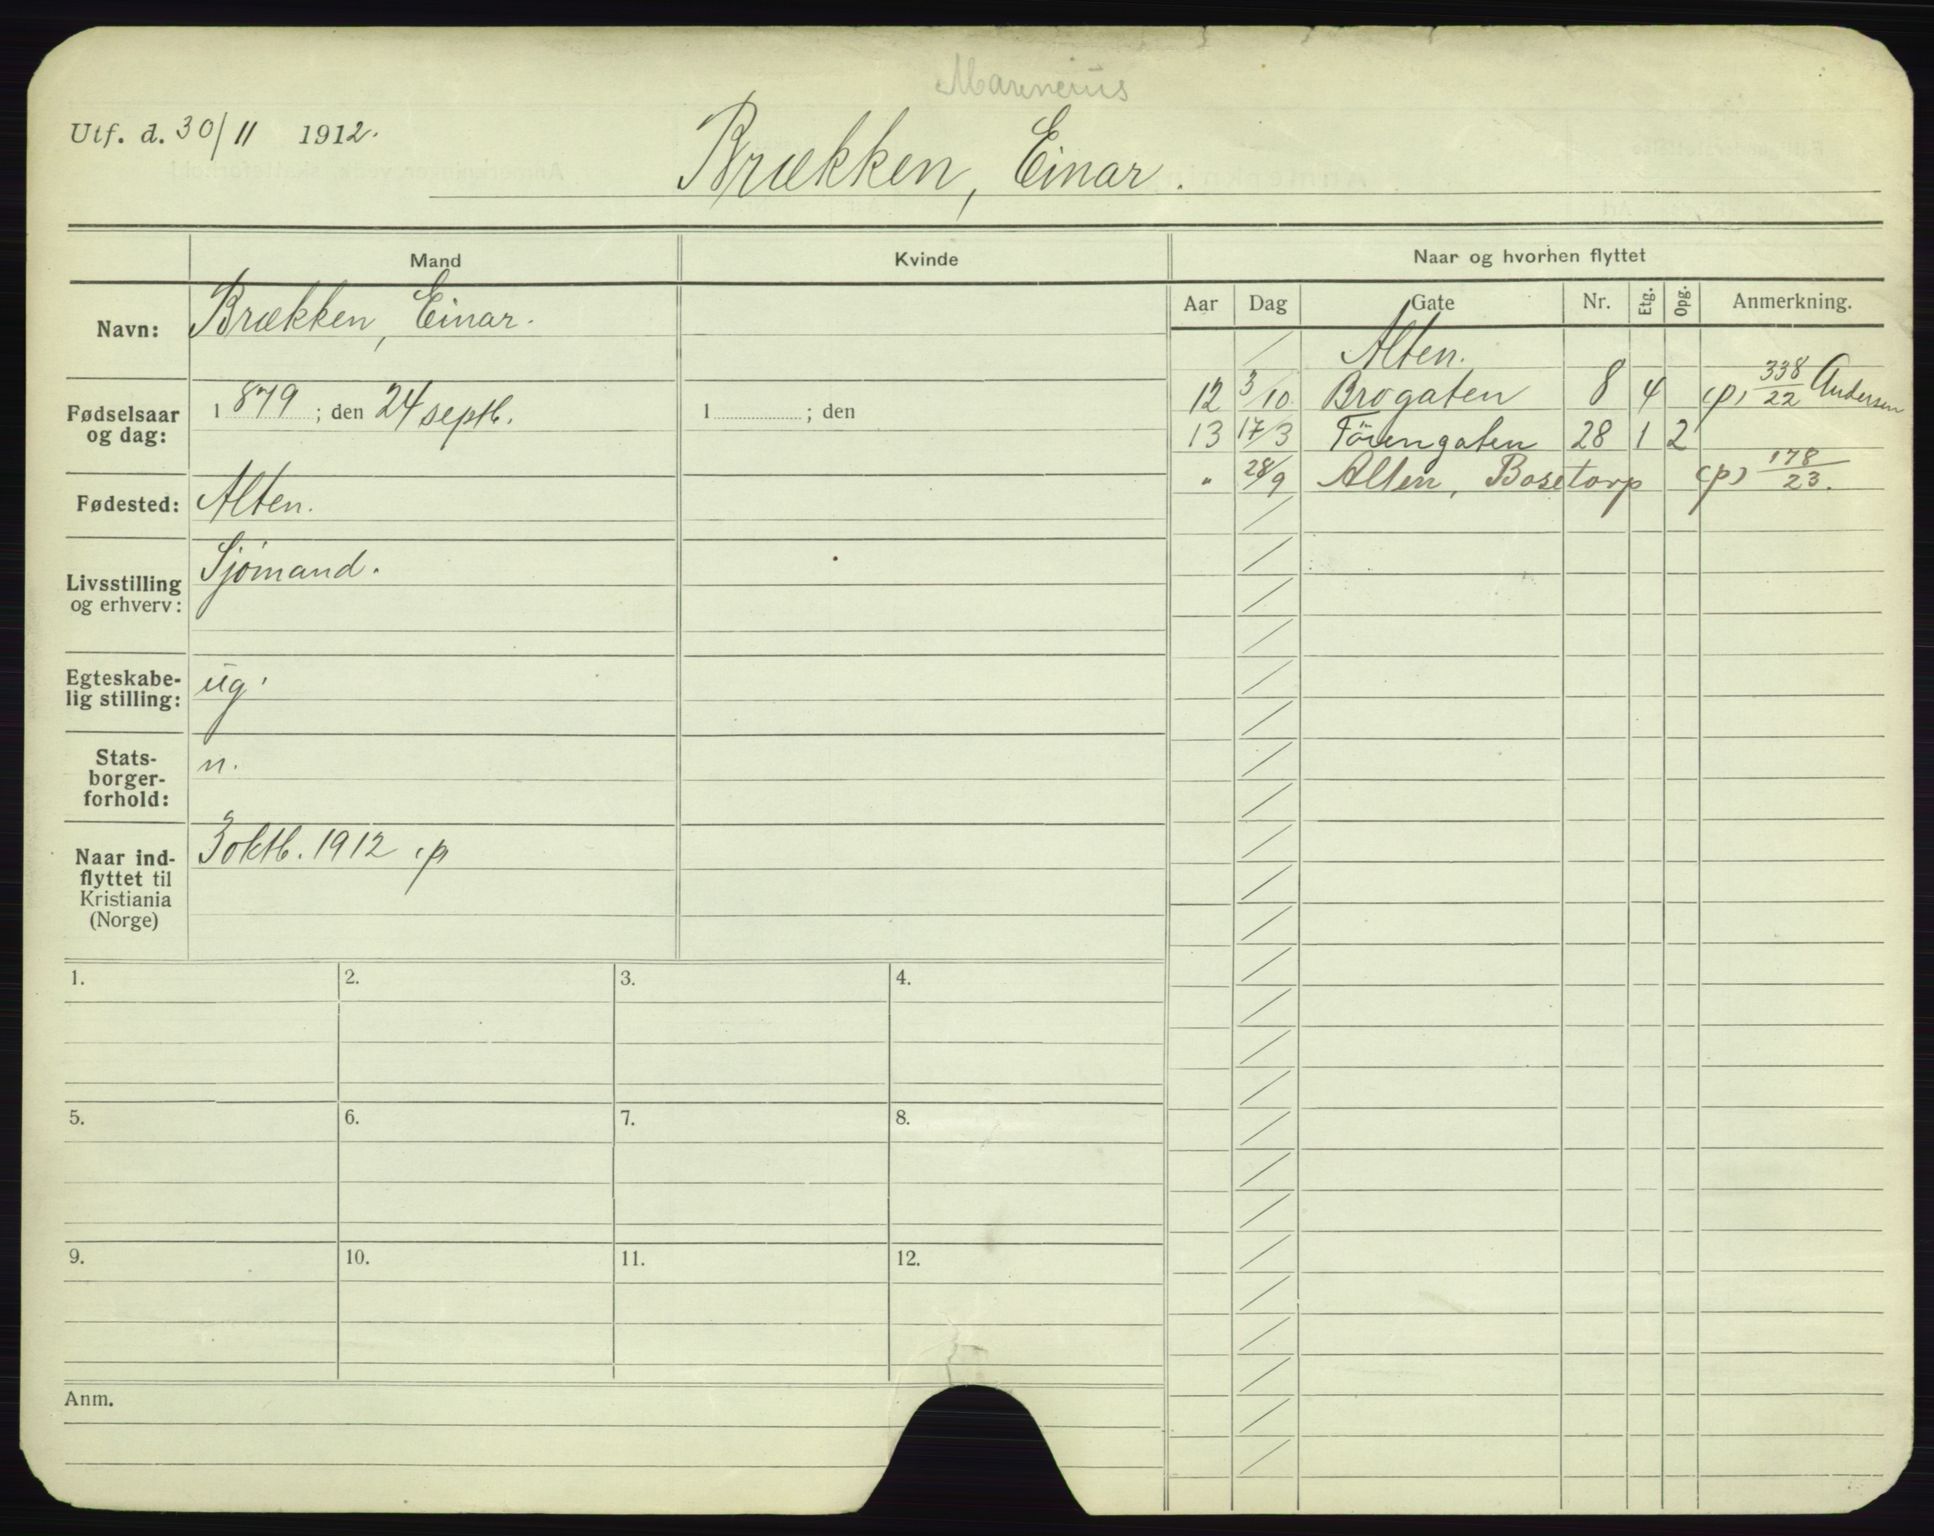 Utf. d. 30/11 1912.
Brækken, Einar.
Mand
Kvinde
Naar og hvorhen flyttet
Aar Dag Gate Nr. Etg. Opg. Anmerkning.
Navn: Brækken, Einar.
Alten.
12 3/10 Brogaten 8 4 (p) 338/22 Andersen
Fødselsaar og dag: 1879; den 24 septb. 1 ; den
13 17/3 28 1 2
" 28/9 Alten, (p) 178/23.
Fødested: Alten.
Livsstilling og erhverv: Sjømand.
Egteskabe-
lig stilling: ug.
Stats-
borger-
forhold: n.
Naar ind-
flyttet til
Kristiania
(Norge) 3 oktb. 1912 p
1. 2. 3. 4.
5. 6. 7. 8.
9. 10. 11. 12.
Anm.